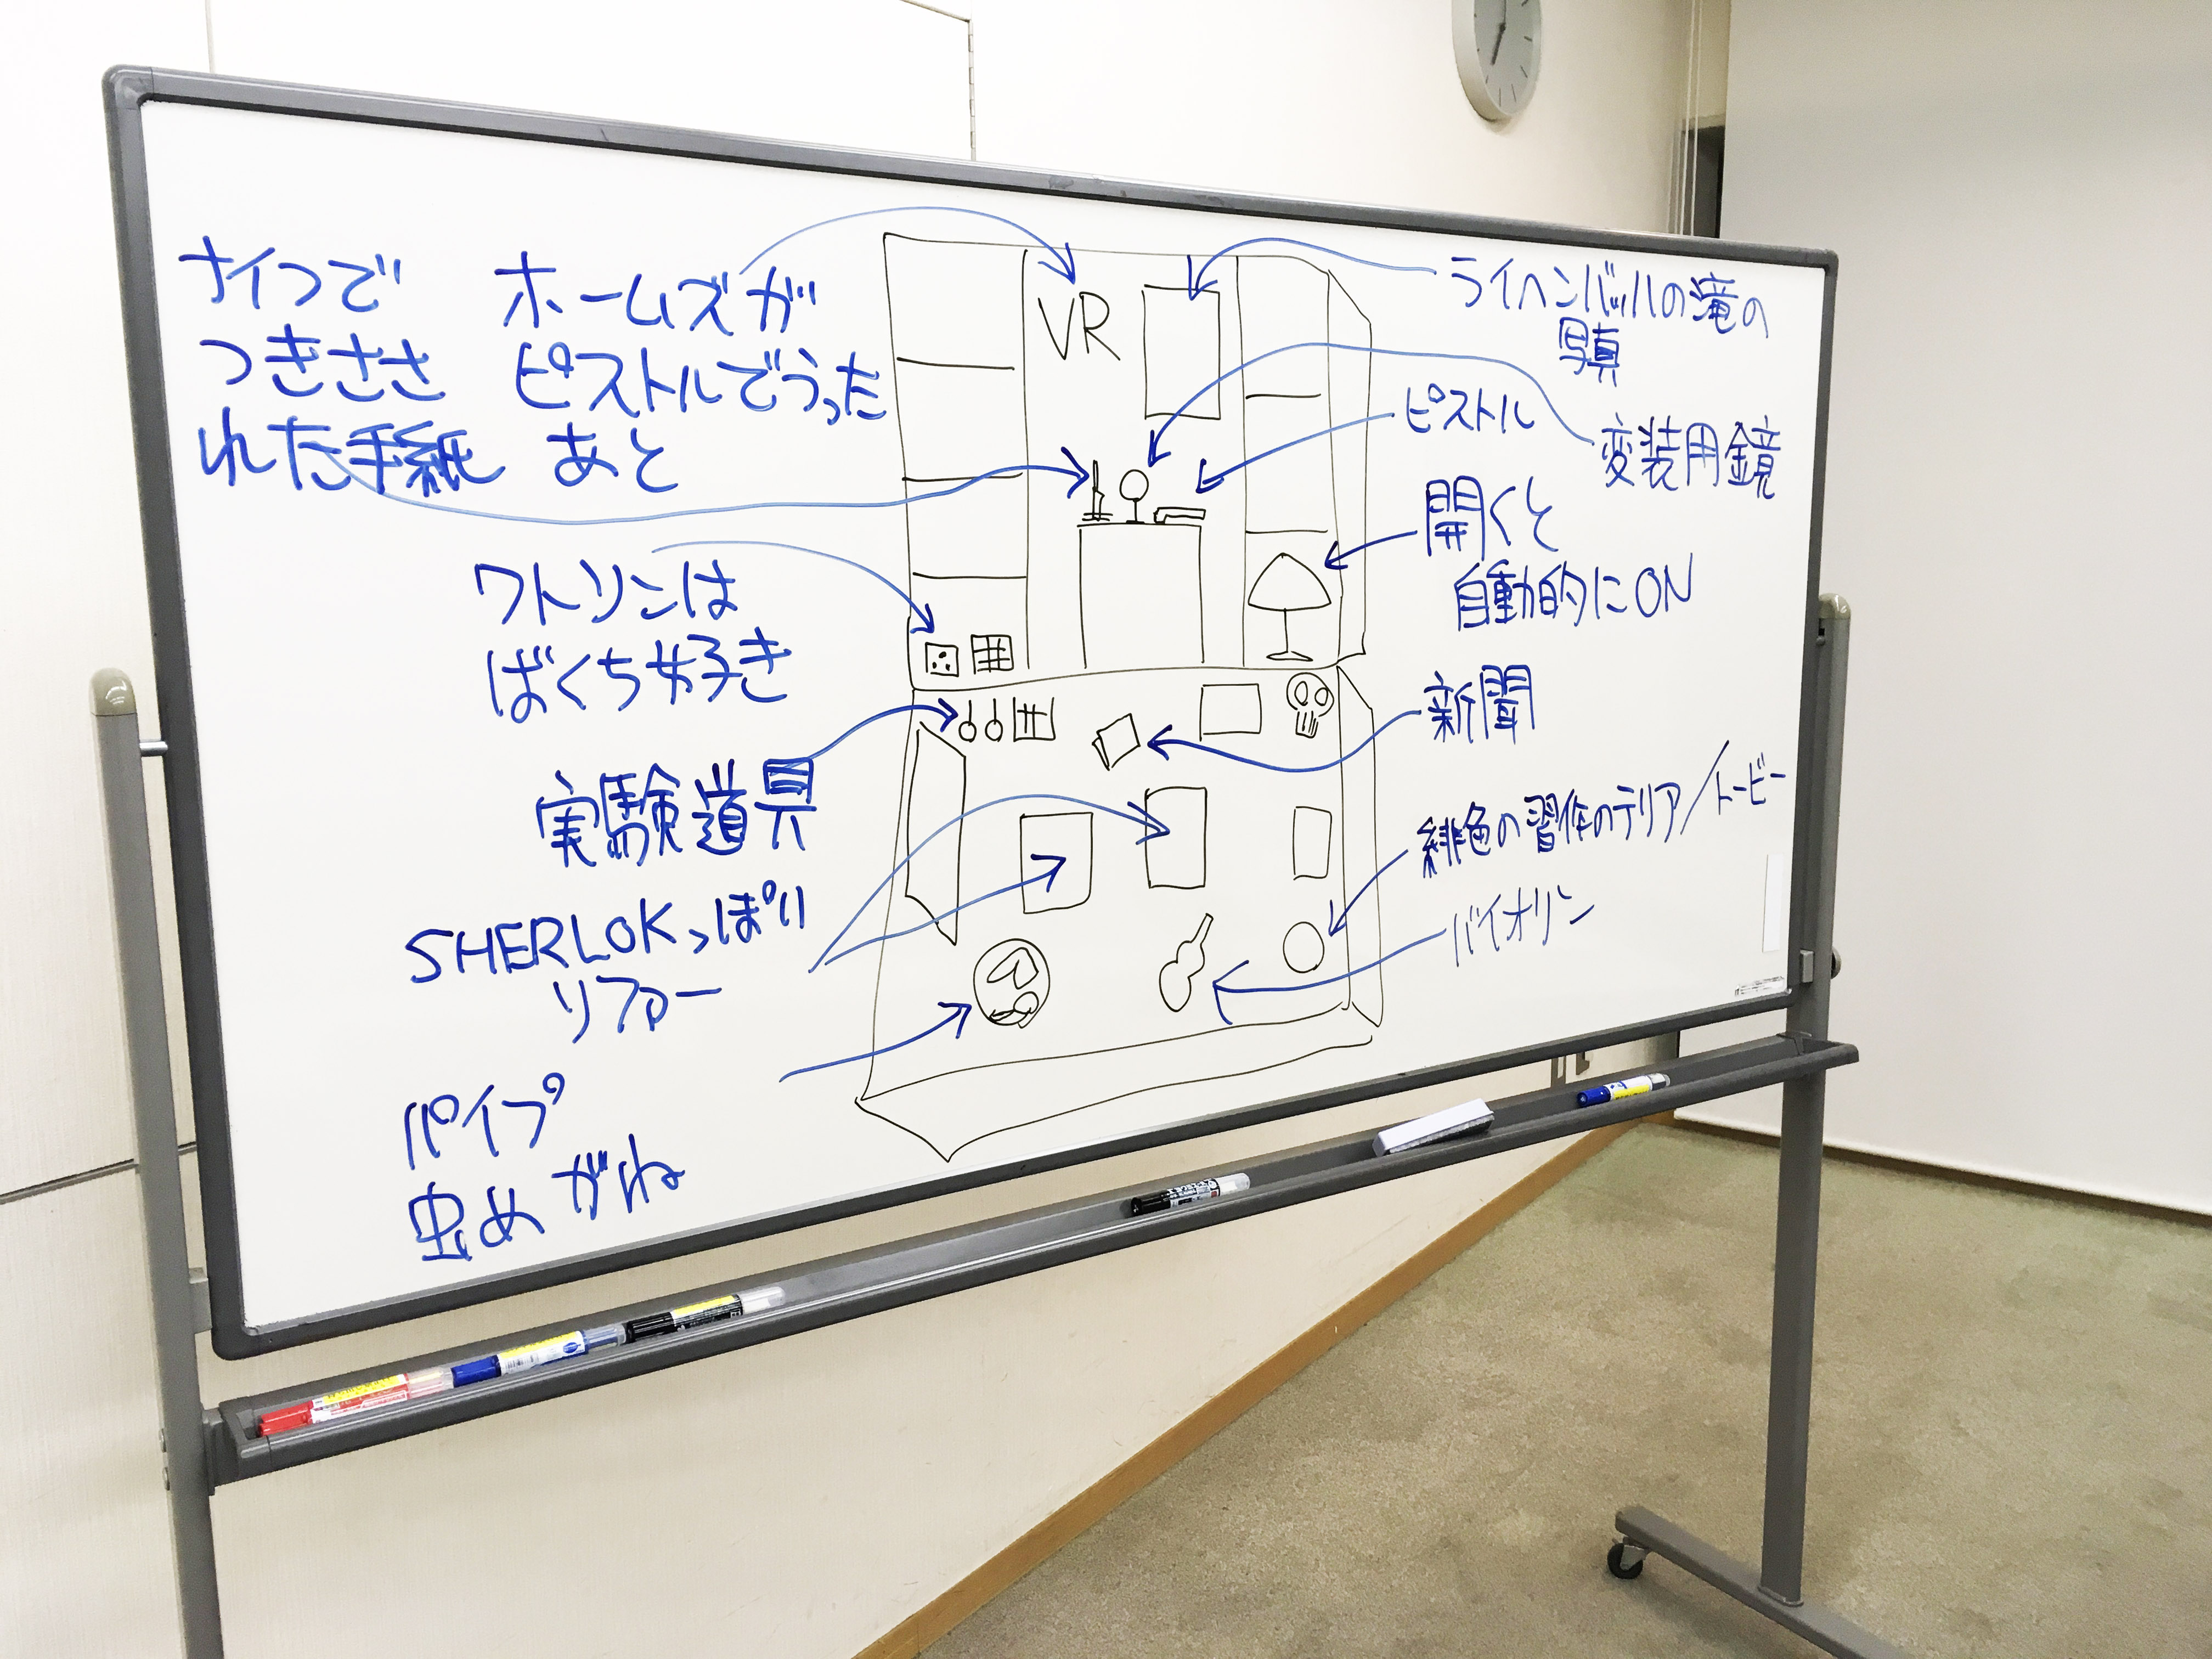 ナイフで
つきささ
れた手紙
ホームズが
ピストルでうった
あと
ワトソンは
ばくち好き
実験道具
SHERLOKっぽい
リファー
パイプ
虫めがね
VR
ライヘンバッハの滝の
写真
ピストル
変装用鏡
開くと
自動的にON
新聞
緋色の習作のテリア/トービー
バイオリン